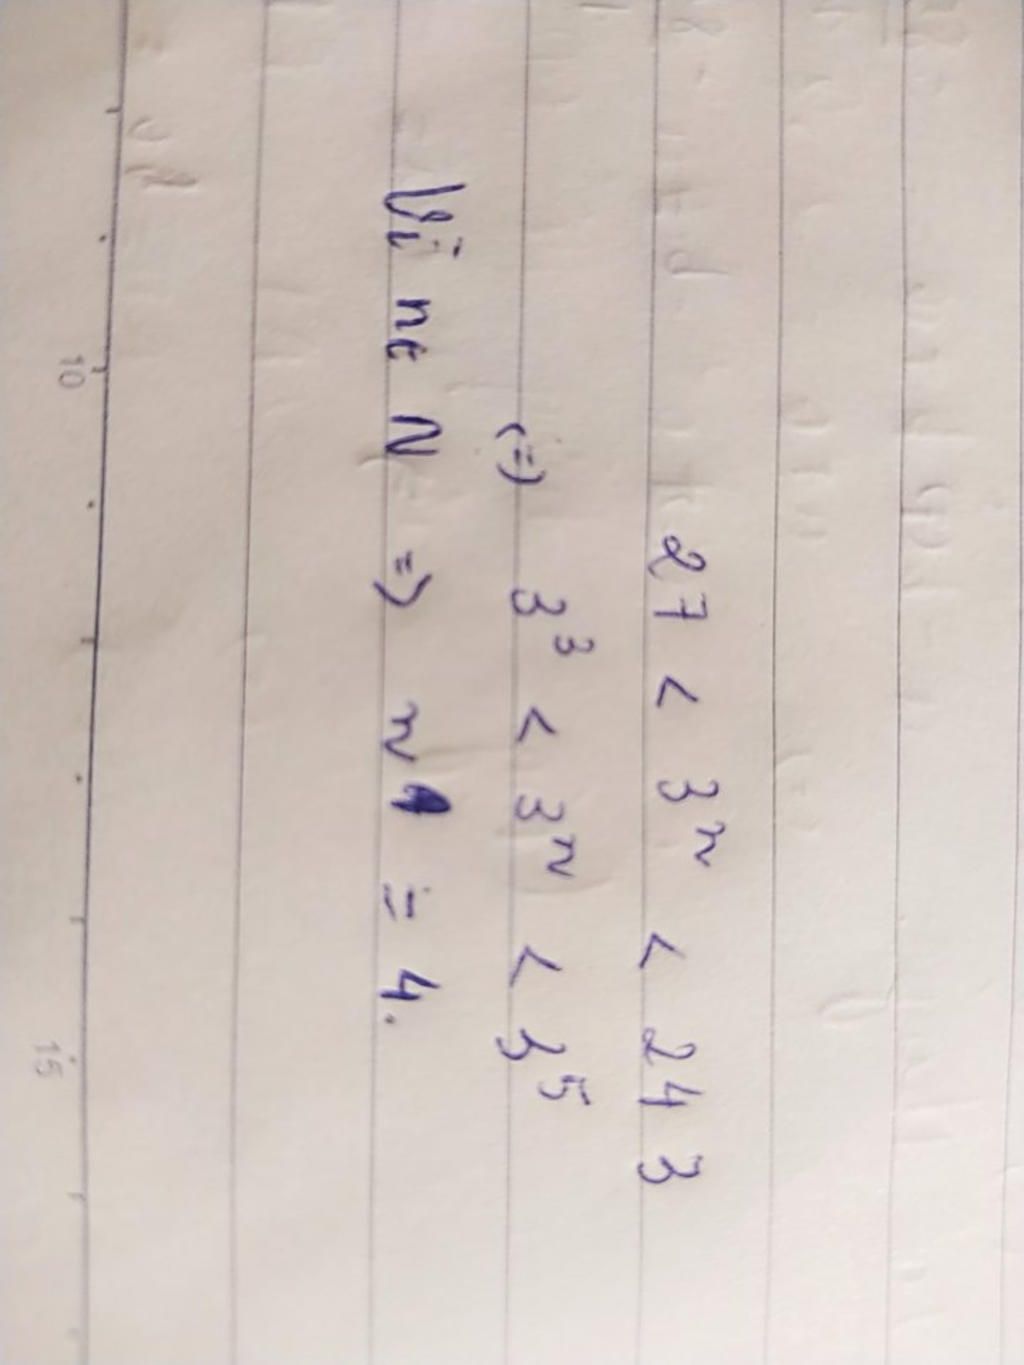 27 < 3ⁿ < 243
(=) 3³ < 3ⁿ < 3⁵
Vì n∈ N => n = 4.
10
15